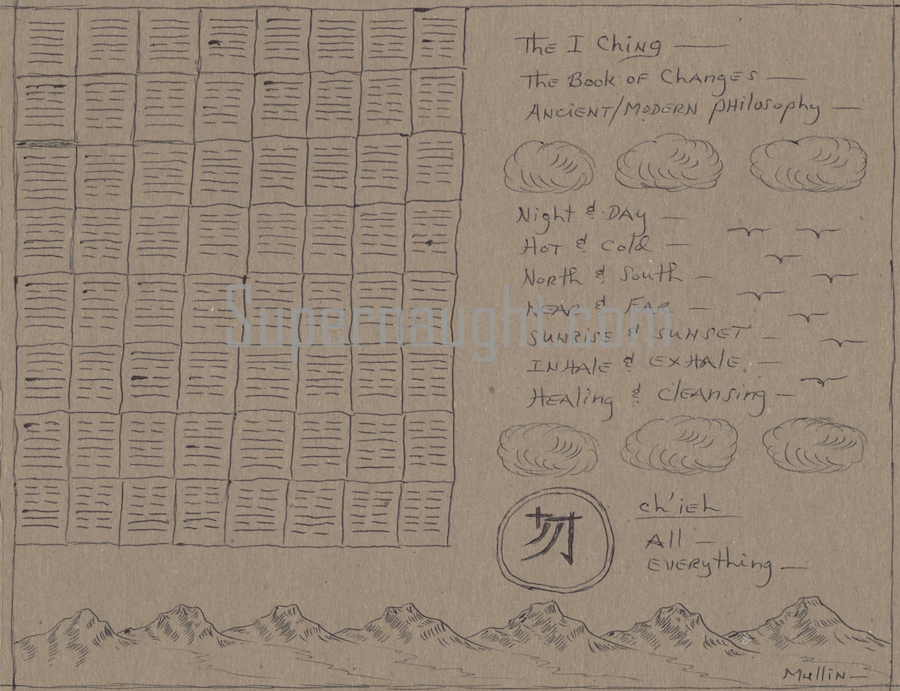 The I Ching —
The Book of Changes —
Ancient/Modern Philosophy —
Night & Day —
Hot & Cold —
North & South —
Near & Far —
Sunrise & Sunset —
Inhale & Exhale —
Healing & Cleansing —
Supernaught.com
切
ch'ieh
All —
Everything —
Mullin —